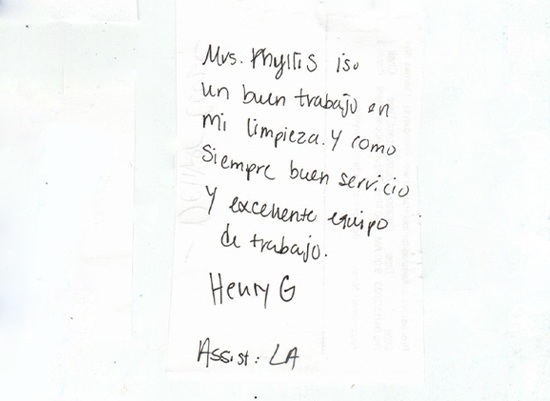 Mrs. Phyllis iso
un buen trabajo en
mi limpieza. Y como
siempre buen servicio
y excelente equipo
de trabajo.
Henry G
Assist: LA